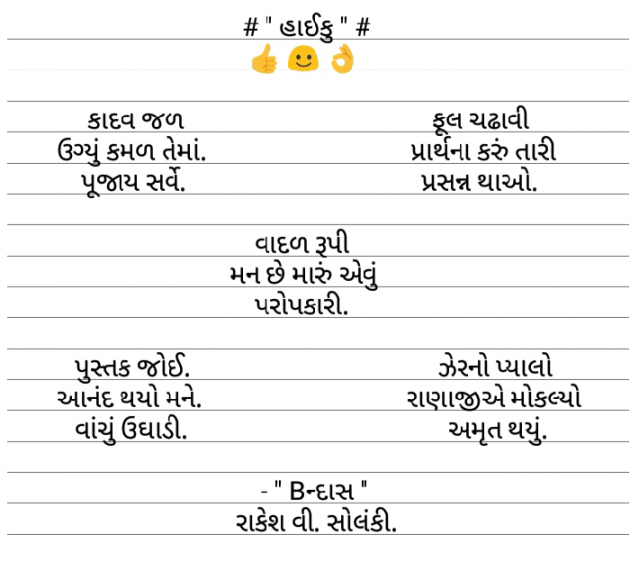 # " હાઈકુ " #
👍 🙂 👌
કાદવ જળ
ઉગ્યું કમળ તેમાં.
પૂજાય સર્વે.
ફૂલ ચઢાવી
પ્રાર્થના કરું તારી
પ્રસન્ન થાઓ.
વાદળ રૂપી
મન છે મારું એવું
પરોપકારી.
પુસ્તક જોઈ.
આનંદ થયો મને.
વાંચું ઉઘાડી.
ઝેરનો પ્યાલો
રાણાજીએ મોકલ્યો
અમૃત થયું.
- " Bન્દાસ "
રાકેશ વી. સોલંકી.